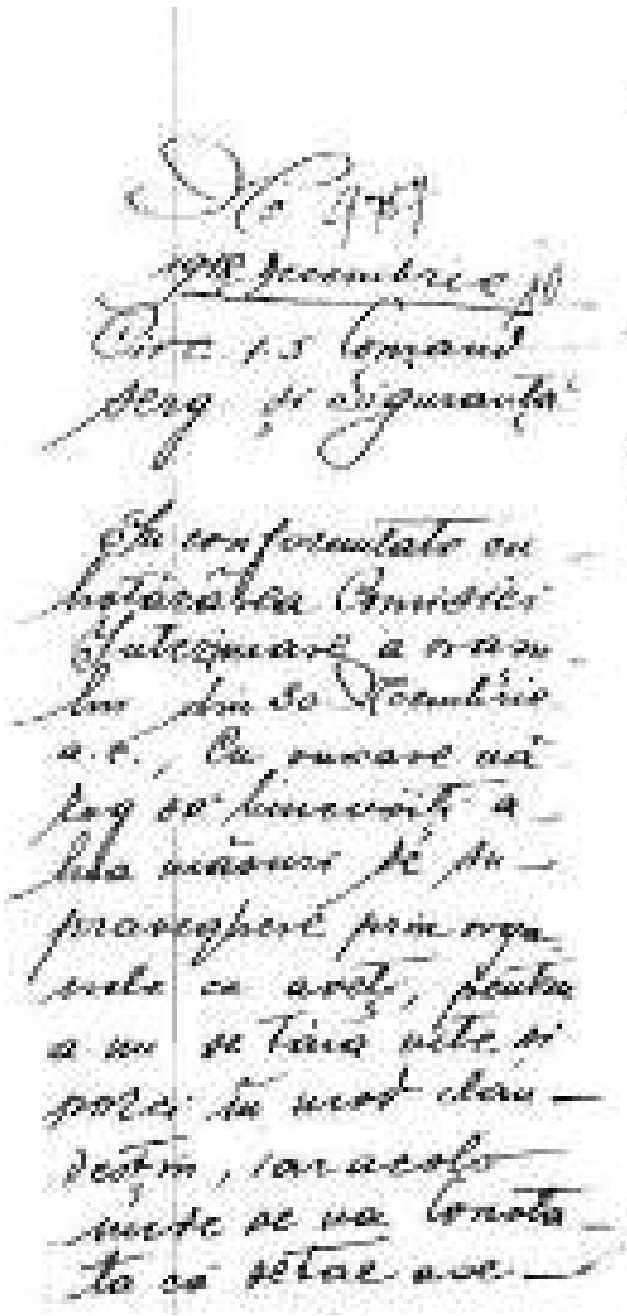 No
1918 Decembrie 10
Circ 1.5 Comand
serg. și Siguranță
În conformitate cu
hotărârea Comisiei
Interimare a orașu
lui din 30 Noembrie
a.c., Cu onoare vă
rog să binevoiți a
lua măsuri de su
praveghere prin orga
nele ce aveți, pentru
a nu se tăia vite și
porci în mod clan
destin, iar acolo
unde se va consta
ta că se tae ave